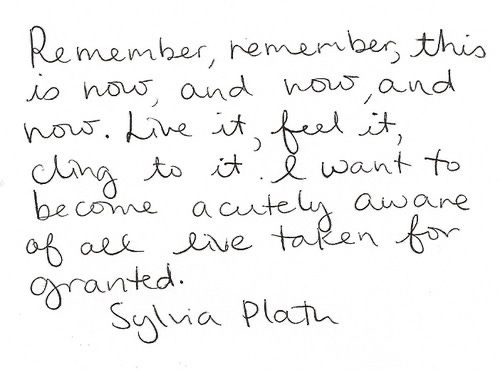 Remember, remember, this
is now, and now, and
now. Live it, feel it,
cling to it. I want to
become acutely aware
of all live taken for
granted.
Sylvia Plath